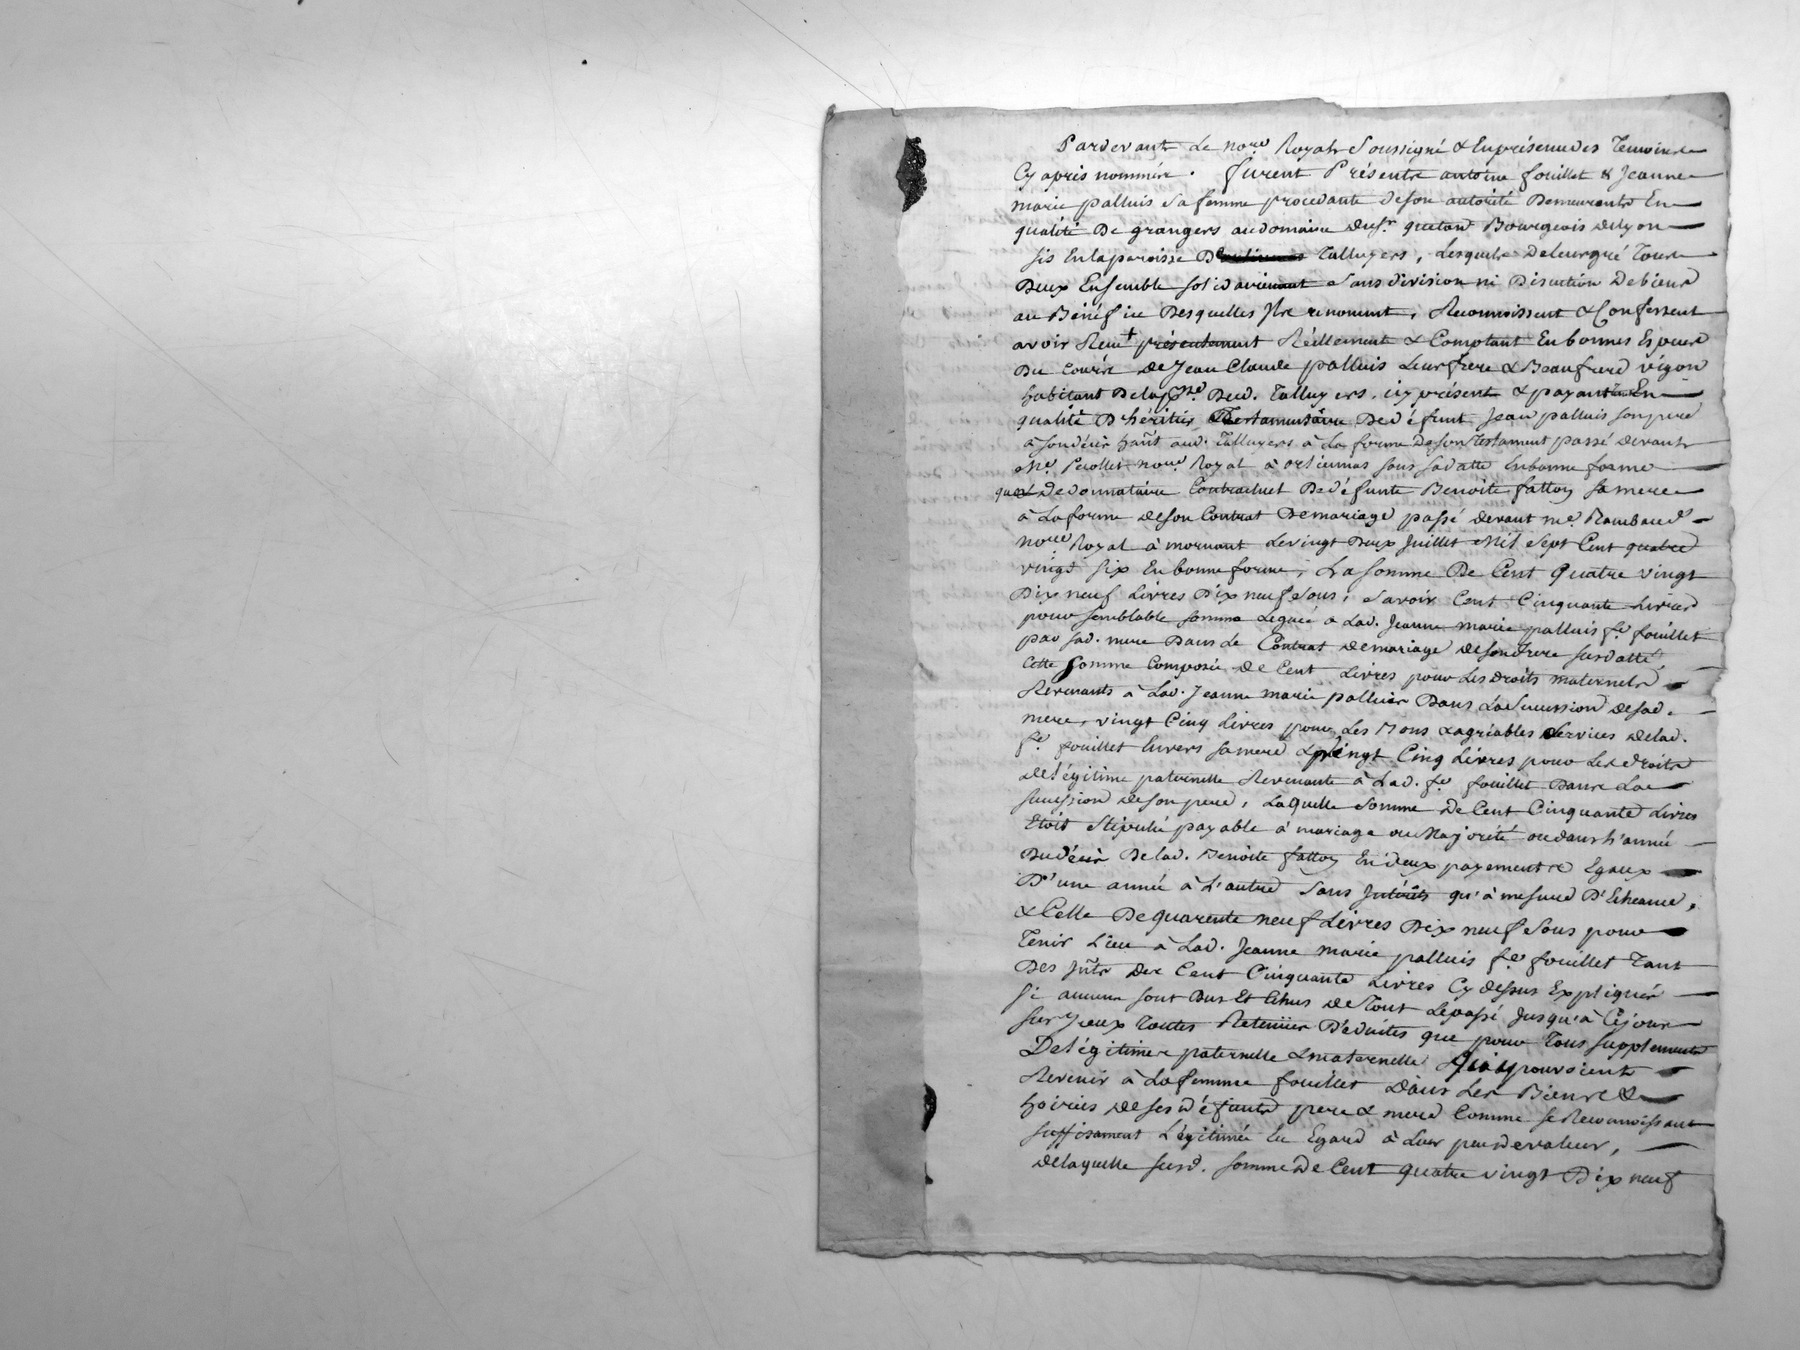 Pardevant Le nore Royal Soussigné & En présence des Temoins
Cy après nommés. furent Présents antoine fouillet & Jeanne
marie palluis sa femme procedante de son autorité Demeurants En
qualité De grangers au domaine du sr. guetand Bourgeois de Lyon
sis En la paroisse De Talluyers, Lesquels de leur gré Tous
Deux Ensemble solidairement sans division ni Discution De biens
au Bénéfice Desquelles Ils renoncent, Reconnoissent & Confessent
avoir Reçu + présentement Réellement & Comptant En bonnes Espèces
Du Cours de Jean Claude palluis Leur frere & Beaufrere vigon
habitant De la psse. Dud. Talluyers, icy présent & payant En
qualité D'héritier Testamentaire De défunt Jean palluis son pere
à son décès hant aud. Talluyers à la forme de son testament passé devant
Me. Peillet nore. Royal à orlienas sous sa datte En bonne forme
que de donnataire Contractuel De défunte Benoite fattoy sa mere
à La forme de son Contrat De mariage passé devant me. Rambaud
nore Royal à mornant Le vingt Deux Juillet Mil Sept Cent quatre
vingt six En bonne forme, La somme De Cent Quatre vingt
Dix neuf Livres Dix neuf Sous, savoir Cent Cinquante Livres
pour semblable somme Leguée à Lad. Jeanne marie palluis fe. fouillet
par sad. mere Dans Le Contrat de mariage de son frere susdatté,
Cette somme Composée de Cent Livres pour Les droits maternels
Revenants à Lad. Jeanne marie palluis Dans La Succession de sad.
mere, vingt Cinq Livres pour Les Bons & agréables Services de lad.
fe. fouillet Envers sa mere & vingt Cinq Livres pour Les droits
de Légitime paternelle Revenants à Lad. fe. fouillet Dans La
succession de son pere, Laquelle Somme de Cent Cinquante Livres
Etoit Stipulée payable à mariage ou Majorité ou dans L'année
Du décès De Lad. Benoite fattoy En deux payements Egaux
D'une année à L'autre Sans Intérêts qu'à mesure D'Echeance,
& Celle De quarente neuf Livres Dix neuf Sous pour
Tenir Lieu à Lad. Jeanne marie palluis fe. fouillet Tant
Des Jnts des Cent Cinquante Livres Cy dessus Expliqués
si aucuns sont Dus Et Echus de Tout Le passé Jusqu'à Cejour
sur Jceux Toutes Retenües Déduites que pour Tous supplements
De légitimes paternelle & maternelle Qui pourroient
Revenir à La femme fouillet Dans Les Biens &
hoiries de ses défunts pere & mere Comme se Reconnoissant
suffisament Légitimée Eu Egard à Leur peu de valeur,
de laquelle susd. somme De Cent quatre vingt Dix neuf